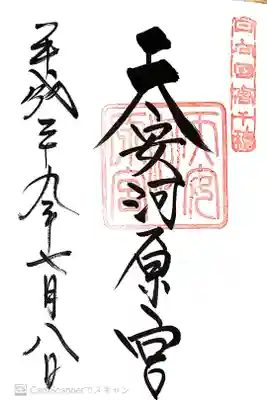 日向国高千穂
天安河原宮
平成二十九年七月八日
CamScannerでスキャン